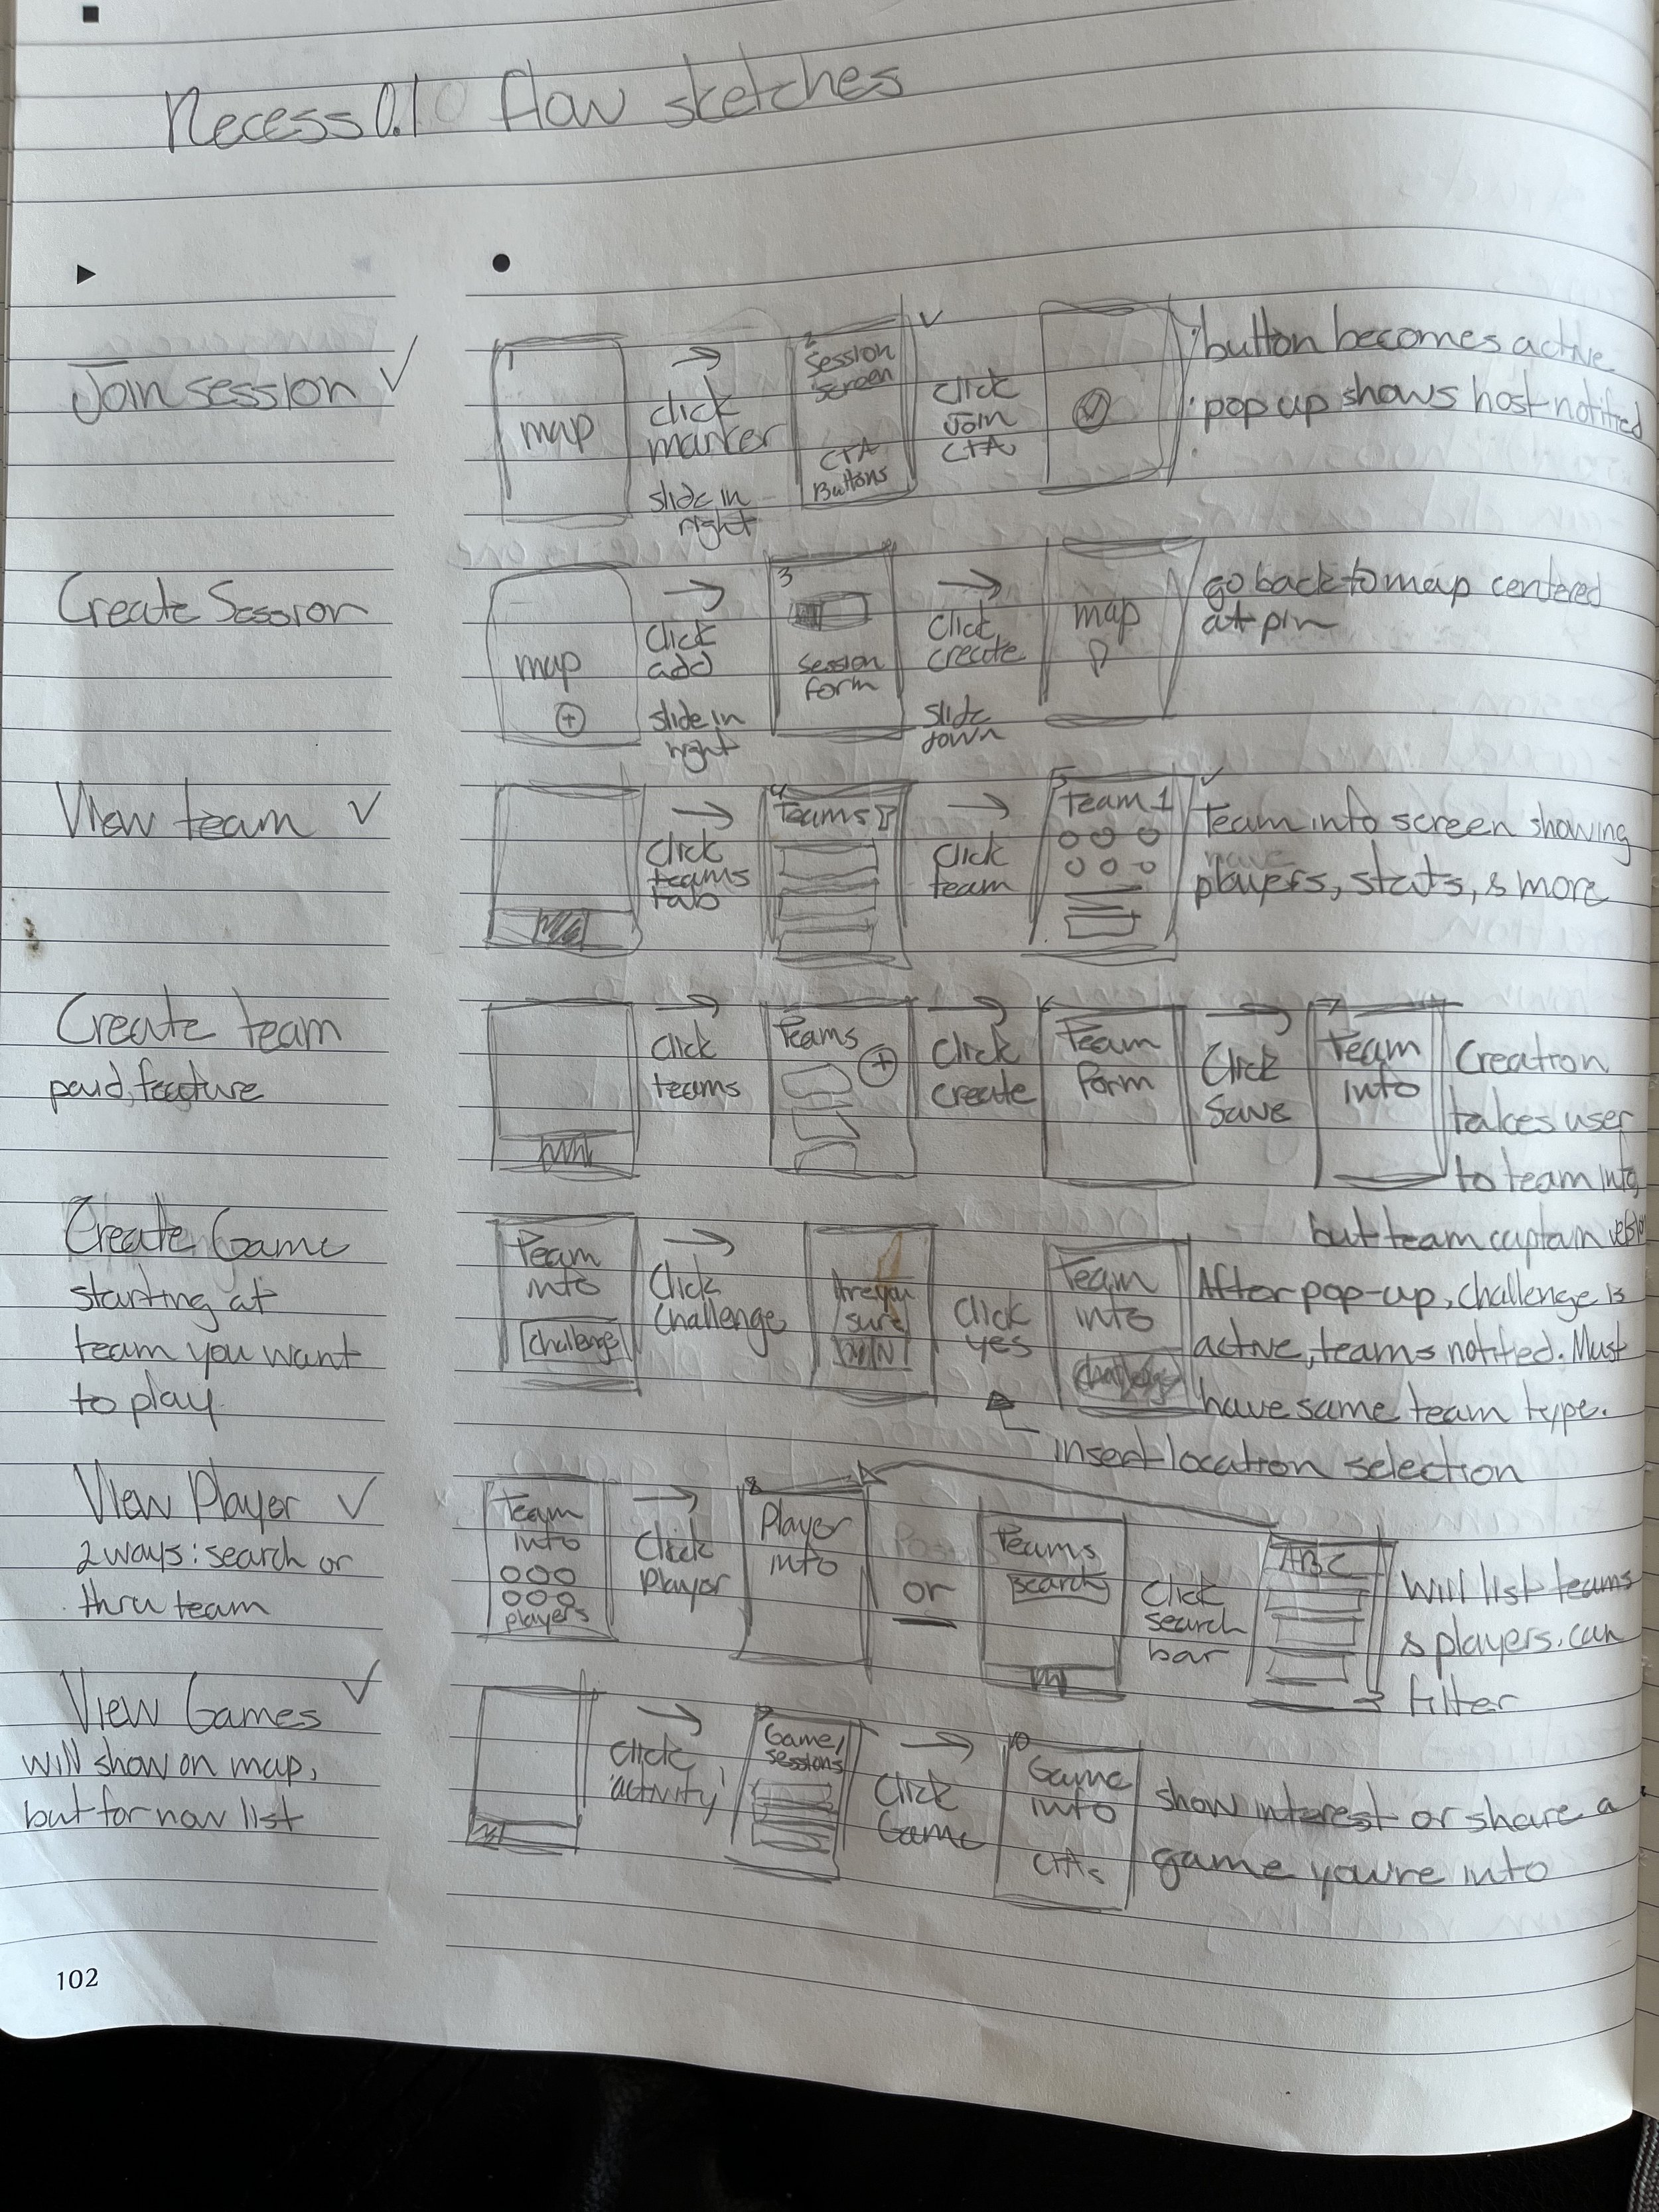 Recess 0.1 flow sketches
Join session ✓
1
map
→
click
marker
slide in
right
2
Session
screen
CTA
Buttons
✓
click
Join
CTA
• button becomes active
• pop up shows host notified
•
Create Session
map
+
→
Click
add
slide in
right
3
session
form
→
Click
create
slide
down
map
go back to map centered
at pin
View team ✓
→
Click
teams
tab
4
Teams
→
Click
team
5
Team 1
✓
Team info screen showing
players, stats, & more
Create team
paid feature
→
Click
teams
Teams
+
→
Click
create
6
Team
Form
→
Click
Save
7
Team
info
Creation
takes user
to team info,
but team captain version
Create Game
starting at
team you want
to play
Team
info
challenge
→
Click
Challenge
Are you
sure
Y/N
Click
yes
Team
info
challenge
After pop-up, challenge is
active, teams notified. Must
have same team type.
insert location selection
View Player ✓
2 ways: search or
thru team
Team
info
players
→
Click
Player
8
Player
info
or
Teams
search
Click
search
bar
ABC
Will list teams
& players, can
filter
View Games ✓
will show on map,
but for now list
→
click
'activity'
9
Game/
sessions
→
Click
Game
10
Game
info
CTAs
show interest or share a
game you're into
102